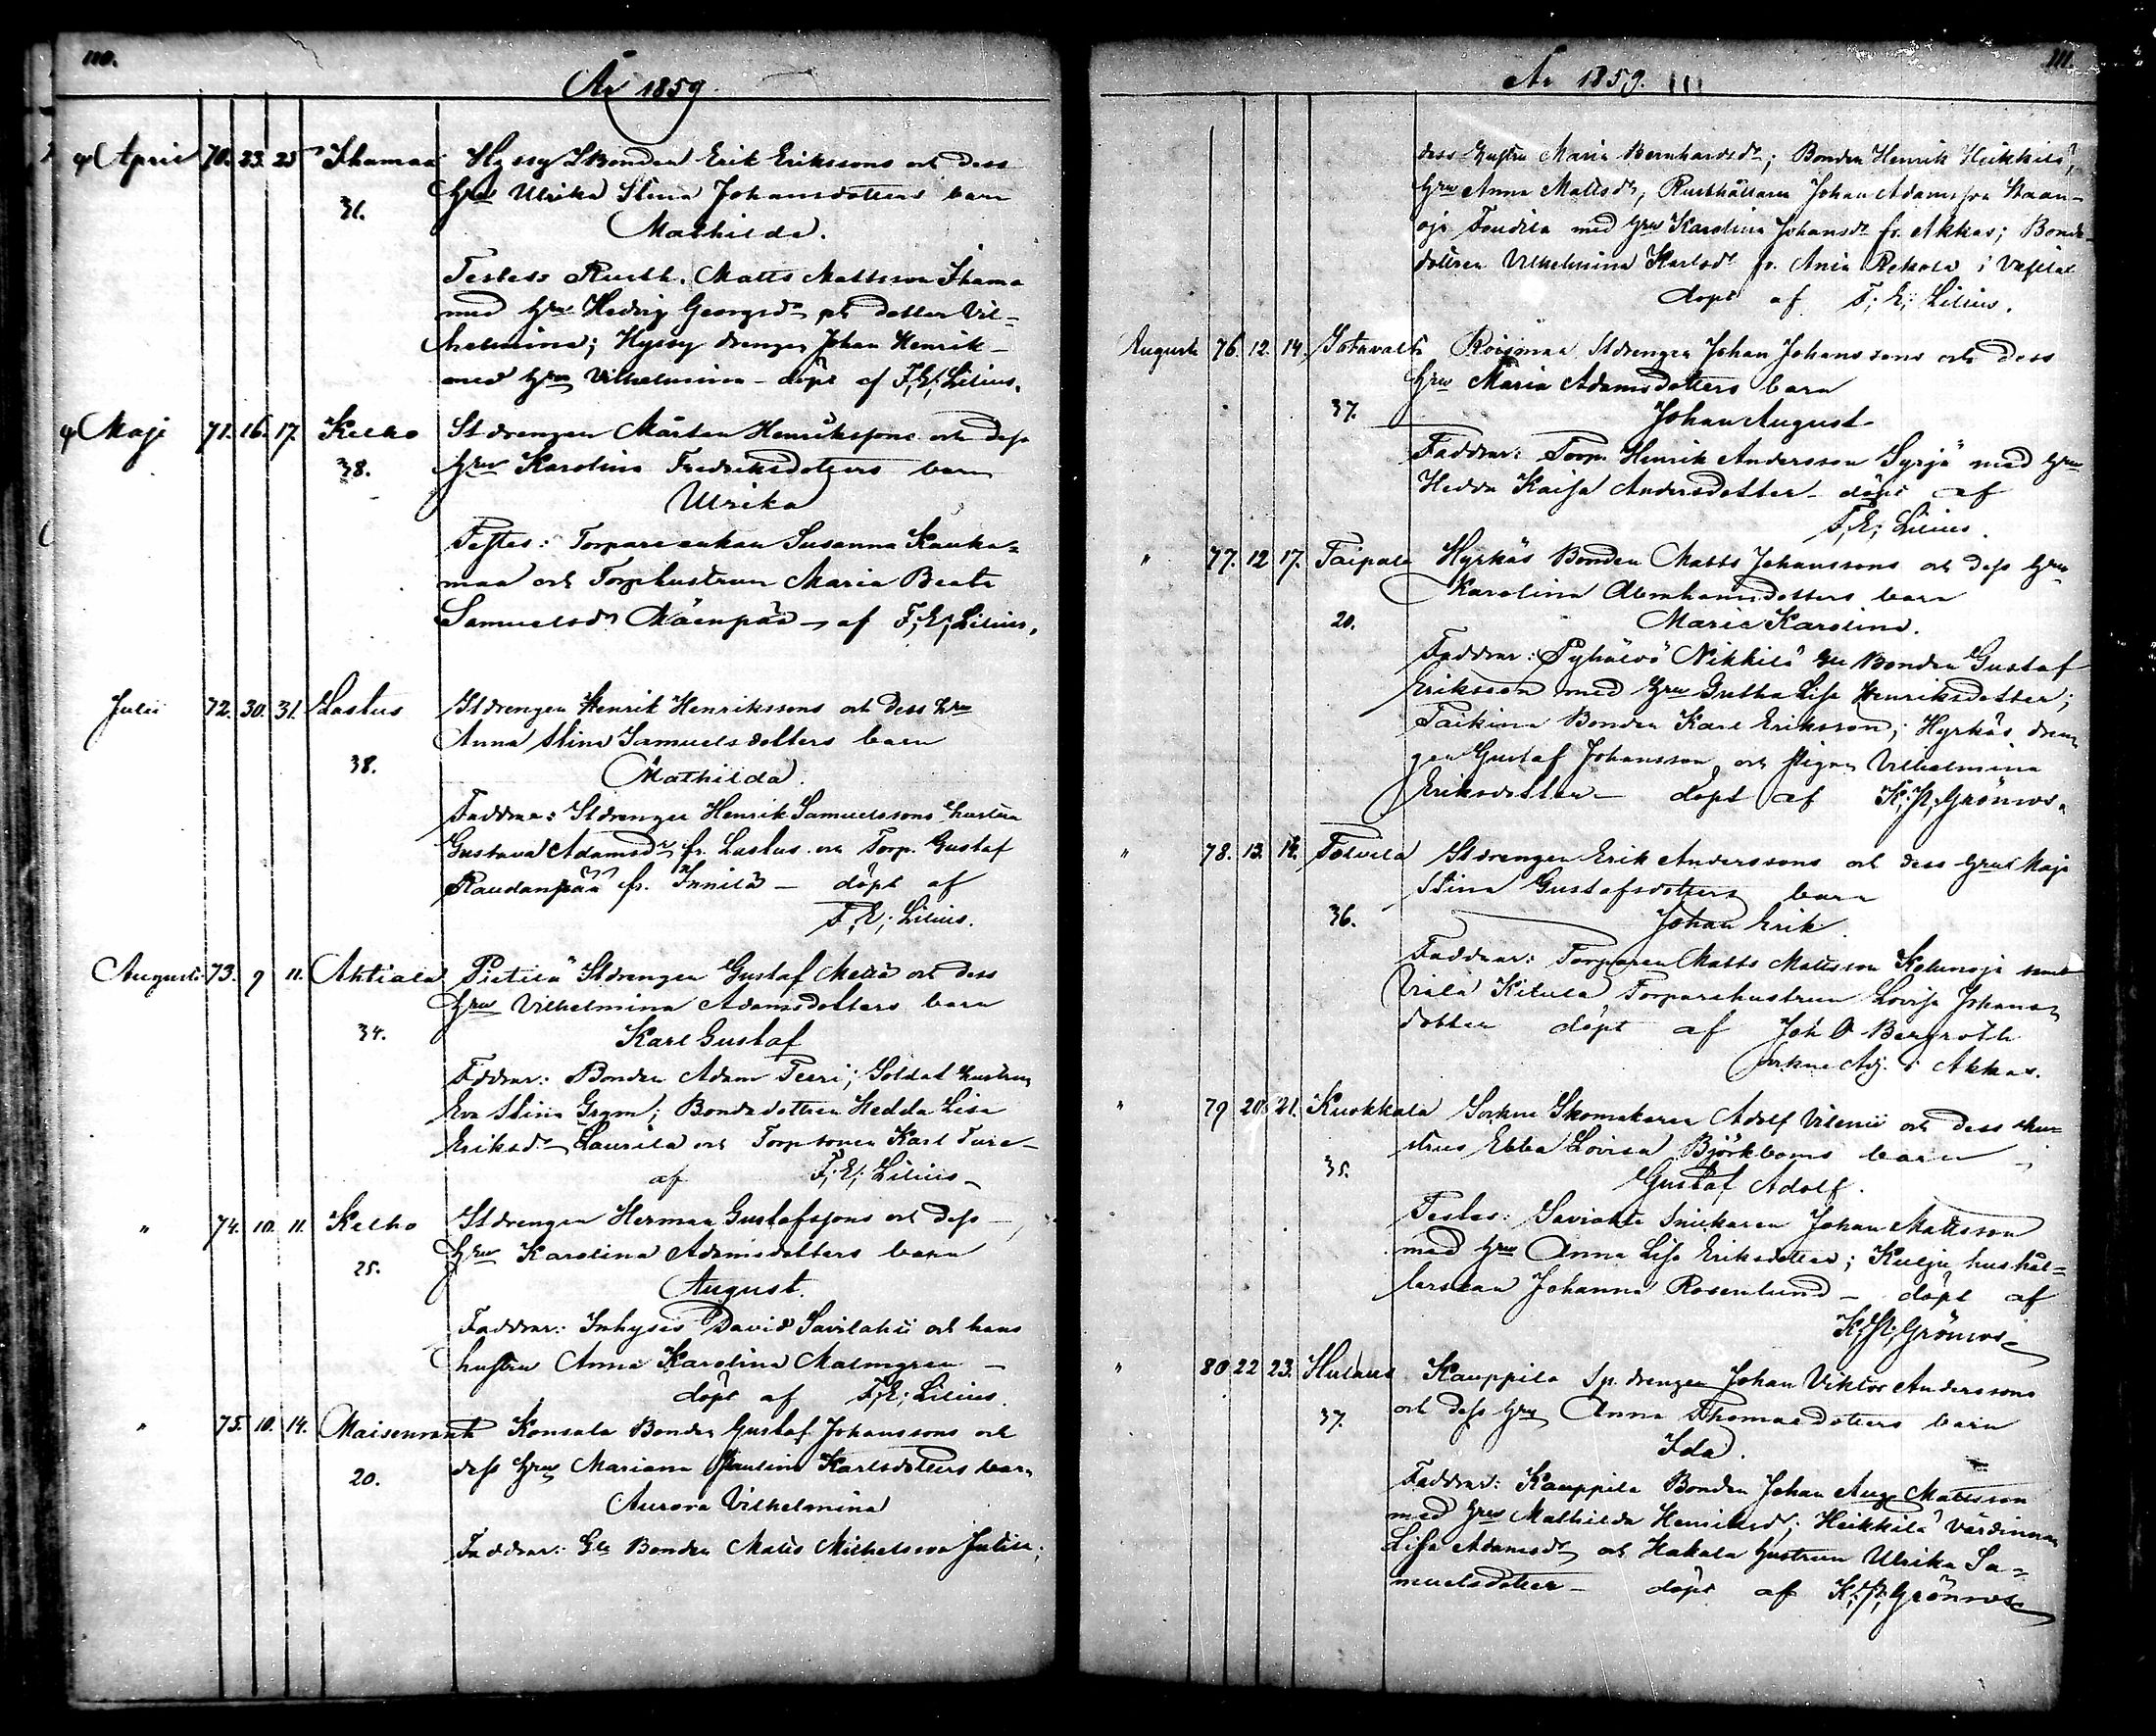 110.
År 1859.
April 70. 23. 25 Ihamaa Hyssy StBonden Erik Erikssons och dess
31. hru Ulrika Stina Johansdotters barn
Mathilda.
Testes Rusth. Matts Mattsson Ihama
med hru Hedvig Georgsdr och dotter Vil-
helmina; Hyssy drengen Johan Henrik
med hru Vilhelmina - döpt af F; E; Lilius.
Maji 71. 16. 17. Kelho Stdrengen Mårten Henrikssons och dess
38. hru Karolina Fredriksdotters barn
Ulrika
Testes: Torpareenkan Susanna Kauha=
maa och Torphustrun Maria Beata
Samuelsdr Mäenpää - af F; E; Lilius.
Julii 72. 30. 31. Lastus Stdrengen Henrik Henrikssons och dess hru
Anna Stina Samuelsdotters barn
38. Mathilda.
Faddrar: Stdrengen Henrik Samuelssons hustru
Gustava Adamsdr fr. Lastus och Torp. Gustaf
Raudanpää fr. Innilä - döpt af
F; E; Lilius.
Augusti 73. 9 11. Ahtiala Pietilä Stdrengen Gustaf Mellin och dess
hru Vilhelmina Adamsdotters barn
34. Karl Gustaf
Fddrar: Bonden Adam Peeri; Soldat hustrun
Eva Stina Grym; Bondedottren Hedda Lisa
Eriksdr Laurila och Torpsonen Karl Ture-
af F; E; Lilius -
" 74. 10. 11. Kelho Stdrengen Herman Gustafssons och dess
hru Karolina Adamsdotters barn
25. August.
Faddrar: Inhyses David Savilahti och hans
hustru Anna Karolina Malmgren -
döpt af F; E; Lilius.
" 75. 10. 14. Maisenvaah Konsala Bonden Gustaf Johanssons och
dess hru Mariana Paulina Karlsdotters barn
20. Aurora Vilhelmina
Faddrar: Gla Bonden Matts Michelsson Jutila;
111.
År 1859.
dess hustru Maria Bernhardsdr; Bonden Henrik Heikkilä,
hru Anna Mattsdr, Rusthållaren Johan Adamsson Haan-
oja Foudila med hru Karolina Johansdr fr. Akkas; Bonde-
dottren Vilhelmina Karlsdr fr. Ania Rekola i Vesilax
döpt af F; E; Lilius.
Augusti 76. 12. 14. Sotavalta Roisonaa Stdrengen Johan Johanssons och dess
hru Maria Adamsdotters barn
37. Johan August
Faddrar: Torp. Henrik Andersson Syrjä med hru
Hedda Kaisa Andersdotter - döpt af
F; E; Lilius.
" 77. 12 17. Taipale Hyrkäs Bonden Matts Johanssons och dess hru
Karolina Abrahamsdotters barn
20. Maria Karolina.
Faddrar: Pyhälvö Nikkilä Gla Bonden Gustaf
Eriksson med hru Gretha Lisa Henriksdotter;
Paikina Bonden Karl Eriksson; Hyrkäs dren-
gen Gustaf Johansson och pigan Vilhelmina
Eriksdotter - döpt af K; H; Grönroos
" 78. 13. 14. Tolvila Stdrengen Erik Anderssons och dess hru Maja
Stina Gustafsdotters barn
36. Johan Erik
Faddrar: Torparen Matts Mattsson Kolunoja samt
Viala Kitula Torparehustrun Lovisa Johans
dotter döpt af Joh O Bergroth
sockne Adj. i Akkas.
" 79 20 21. Kuokkala Sockne Skomakaren Adolf Vilenii och dess hu=
strus Ebba Lovisa Björkboms barn
35. Gustaf Adolf.
Testes: Saviahte Snickaren Johan Mattsson
med hru Anna Lisa Eriksdotter; Kulju hushål=
lerskan Johanna Rosenlund - döpt af
K; H; Grönroos
" 80 22 23. Hulaus Kauppila Sp. drengen Johan Viktor Anderssons
37. och dess hru Anna Thomasdotters barn
Ida.
Faddrar: Kauppila Bonden Johan Aug. Mattsson
med hru Mathilda Henriksdr; Heikkilä värdinnan
Lisa Adamsdr och Hakala hustrun Ulrika Sa=
muelsdotter - döpt af K; H; Grönroos